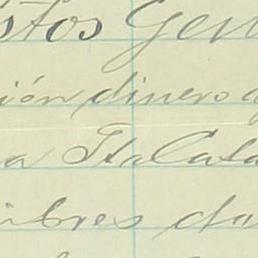 stos Gen
ión dinero a
a Sta Cata
mbres da